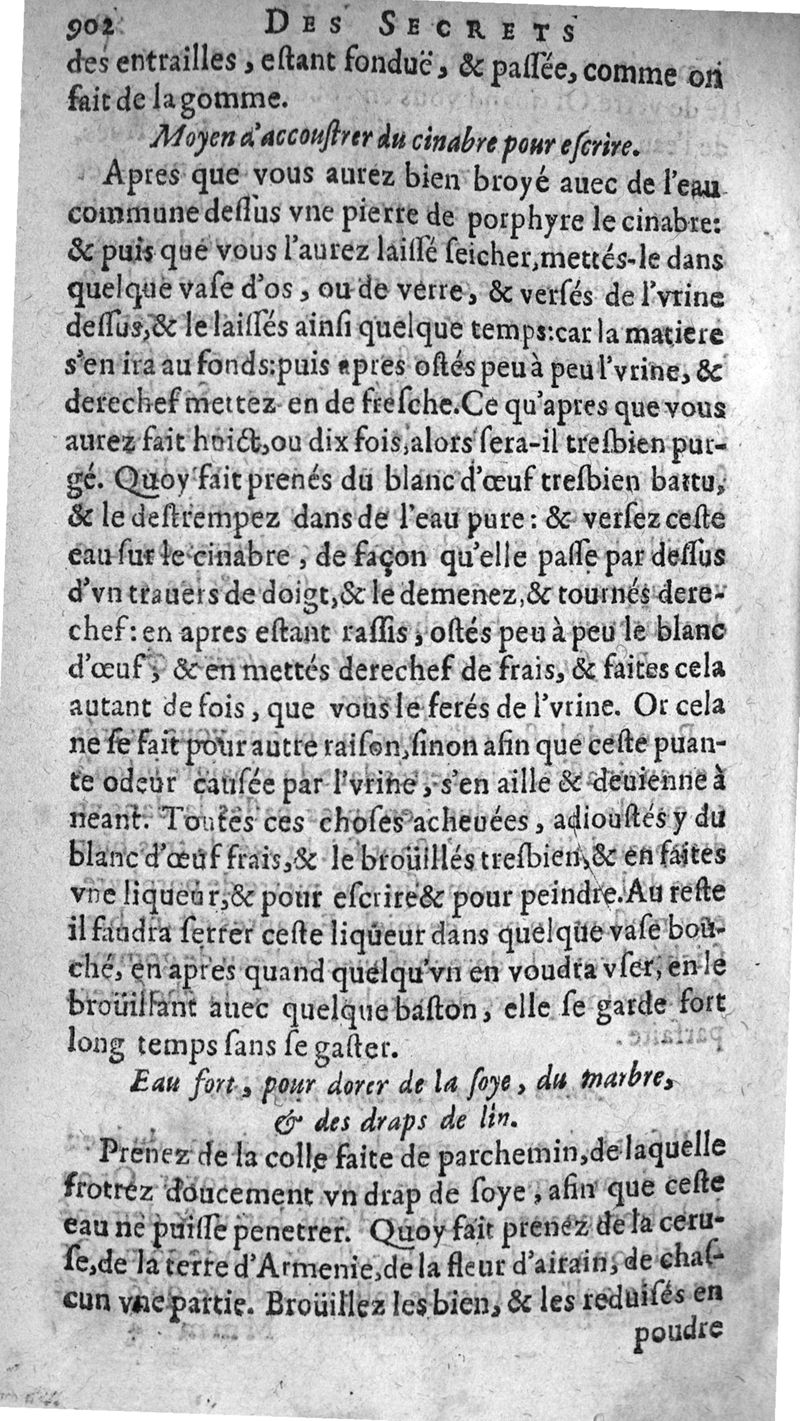 902 DES SECRETS
des entrailles, eſtant fonduë, & paſſée, comme on
fait de la gomme.
Moyen d'accouſtrer du cinabre pour eſcrire.
Apres que vous aurez bien broyé auec de l'eau
commune deſſus vne pierre de porphyre le cinabre:
& puis que vous l'aurez laiſſé ſeicher, mettés-le dans
quelque vaſe d'os, ou de verre, & verſés de l'vrine
deſſus, & le laiſſés ainſi quelque temps: car la matiere
s'en ira au fonds: puis apres oſtés peu à peu l'vrine, &
derechef mettez en de freſche. Ce qu'apres que vous
aurez fait huict, ou dix fois, alors ſera-il treſbien pur-
gé. Quoy fait prenés du blanc d'œuf treſbien battu,
& le deſtrempez dans de l'eau pure: & verſez ceſte
eau ſur le cinabre, de façon qu'elle paſſe par deſſus
d'vn trauers de doigt, & le demenez, & tournés dere-
chef: en apres eſtant raſſis, oſtés peu à peu le blanc
d'œuf, & en mettés derechef de frais, & faites cela
autant de fois, que vous le ferés de l'vrine. Or cela
ne ſe fait pour autre raiſon, ſinon afin que ceſte puan-
te odeur cauſée par l'vrine, s'en aille & deuienne à
neant. Toutes ces choſes acheuées, adiouſtés y du
blanc d'œuf frais, & le broüillés treſbien, & en faites
vne liqueur, & pour eſcrire & pour peindre. Au reſte
il faudra ſerrer ceſte liqueur dans quelque vaſe bou-
ché, en apres quand quelqu'vn en voudra vſer, en le
broüillant auec quelque baſton, elle ſe garde fort
long temps ſans ſe gaſter.
Eau fort, pour dorer de la ſoye, du marbre,
& des draps de lin.
Prenez de la colle faite de parchemin, de laquelle
frotrez doucement vn drap de ſoye, afin que ceſte
eau ne puiſſe penetrer. Quoy fait prenez de la ceru-
ſe, de la terre d'Armenie, de la fleur d'airain, de chaſ-
cun vne partie. Broüillez les bien, & les reduiſés en
poudre